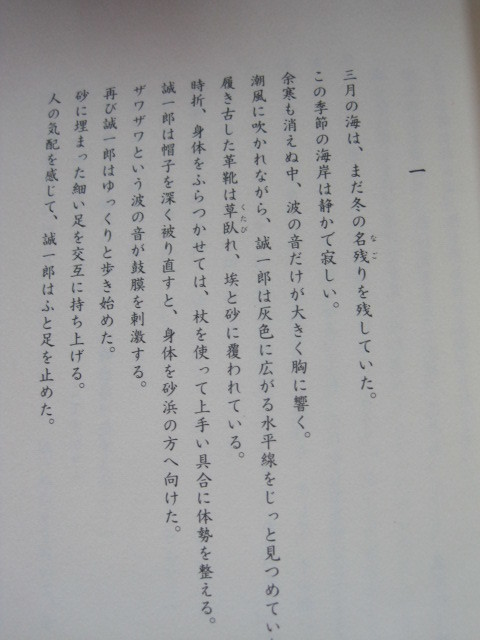 一
三月の海は、まだ冬の名残りを残していた。
なご
この季節の海岸は静かで寂しい。
余寒も消えぬ中、波の音だけが大きく胸に響く。
潮風に吹かれながら、誠一郎は灰色に広がる水平線をじっと見つめてい
履き古した革靴は草臥れ、埃と砂に覆われている。
くたび
時折、身体をふらつかせては、杖を使って上手い具合に体勢を整える。
誠一郎は帽子を深く被り直すと、身体を砂浜の方へ向けた。
ザワザワという波の音が鼓膜を刺激する。
再び誠一郎はゆっくりと歩き始めた。
砂に埋まった細い足を交互に持ち上げる。
人の気配を感じて、誠一郎はふと足を止めた。